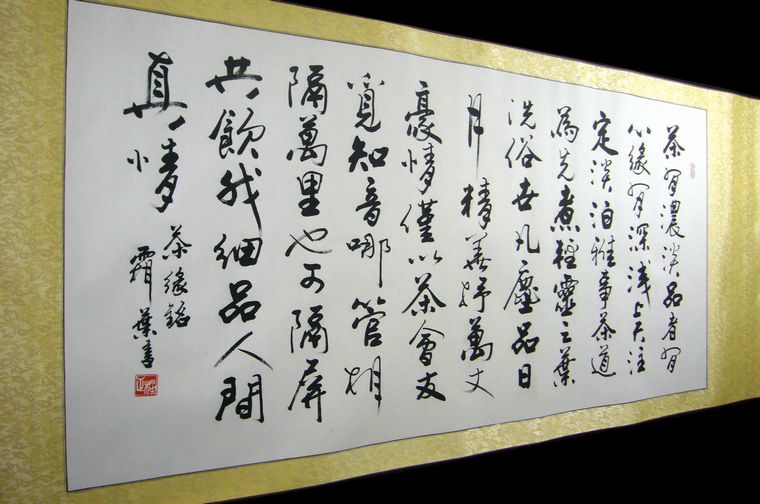 茶有濃淡品者有
心緣有深浅上天注
定淡泊雅事茶道
為先煮輕靈之葉
洗俗世凡塵品日
月精華抒萬丈
豪情僅以茶會友
覓知音哪管相
隔萬里也可隔屏
共飲我細品人間
真情
茶緣銘
霜葉書